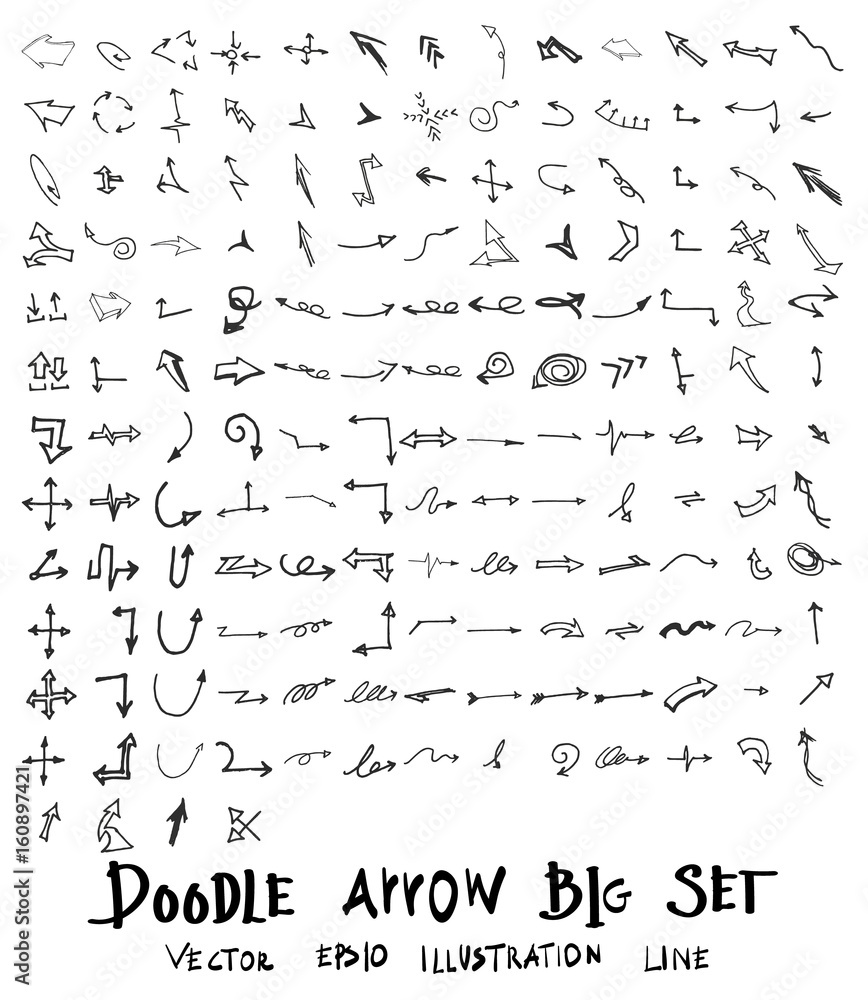 DOODLE ArrOW BIG SET
VECTOR EPS10 ILLUSTRATION LINE
Adobe Stock | #160897421